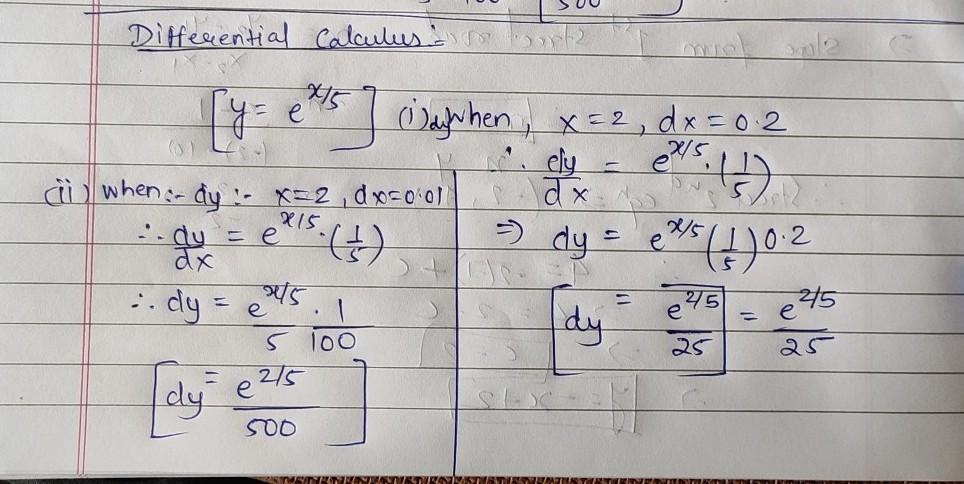 500
Differential Calculus:-
[y = e^x/5] (i) dy when, x = 2, dx = 0.2
∴ dy/dx = e^x/5 . (1/5)
⇒ dy = e^x/5 (1/5) 0.2
[dy = e^2/5 / 25] = e^2/5 / 25
(ii) when:- dy :- x=2, dx=0.01
∴ dy/dx = e^x/5 . (1/5)
∴ dy = e^x/5 / 5 . 1/100
[dy = e^2/5 / 500]